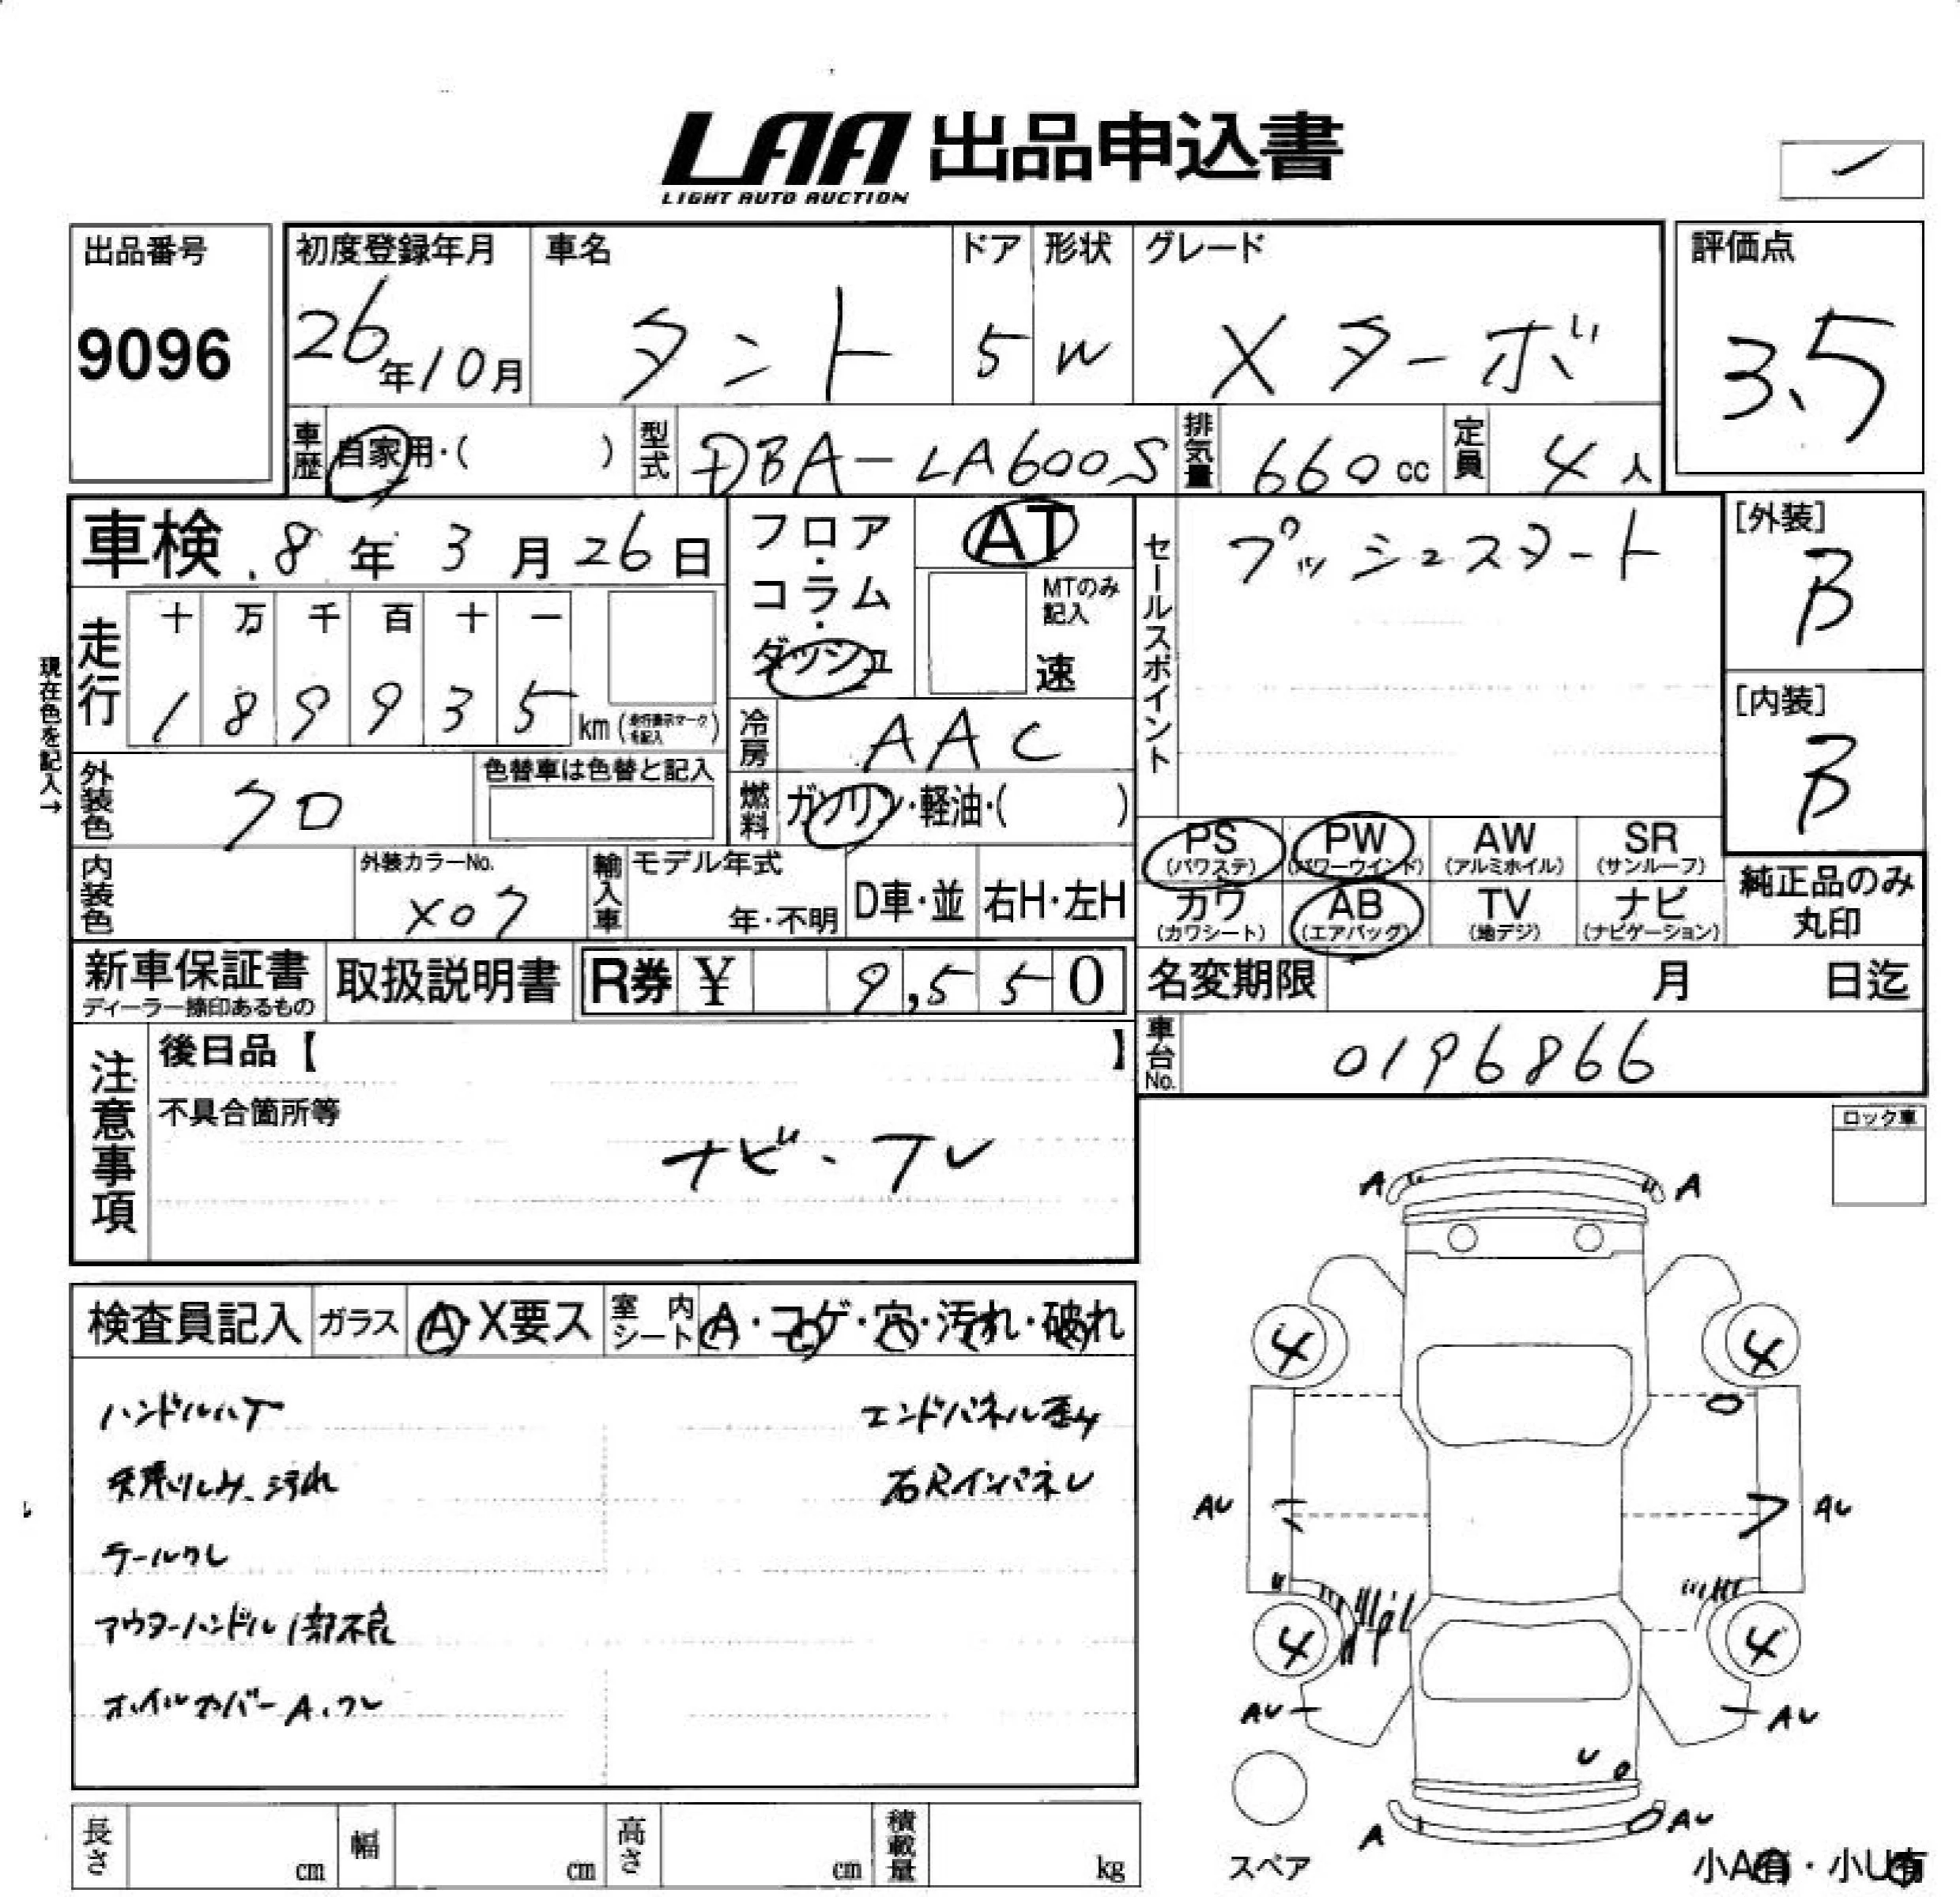 LAA 出品申込書
LIGHT AUTO AUCTION
出品番号 初度登録年月 車名 ドア 形状 グレード 評価点
9096 26年10月 タント 5 W Xターボ 3.5
車歴 自家用・( ) 型式 DBA-LA600S 排気量 660cc 定員 4人
車検 8年3月26日 フロア・コラム・ダッシュ AT MTのみ記入 速
セールスポイント プッシュスタート
[外装] B
現在色を記入→
走行 十 万 千 百 十 一
1 8 9 9 3 5 km (走行表示マークを記入)
[内装] B
冷房 AAC
外装色 クロ 色替車は色替と記入 燃料 ガソリン・軽油・( )
PS (パワステ) PW (パワーウインド) AW (アルミホイル) SR (サンルーフ)
内装色 外装カラーNo. X07 輸入車 モデル年式 年・不明 D車・並 右H・左H
カワ (カワシート) AB (エアバッグ) TV (地デジ) ナビ (ナビゲーション)
純正品のみ丸印
新車保証書 ディーラー捺印あるもの 取扱説明書 R券 ¥ 9,550 名変期限 月 日迄
注意事項 後日品【 】 車台No. 0196866
不具合箇所等
ナビ・テレ
ロック車
A A
検査員記入 ガラス A・X要ス 室内シート A・コゲ・穴・汚れ・破れ
4 4
ハンドルハゲ エンドパネル歪み
天張りしみ、汚れ 右Rインパネレ
AU AU
テールワレ
アウターハンドル1部不良
4 4
ホイルカバーA、ワレ
AU AU
U
A AU
スペア
小A有・小U有
長さ cm 幅 cm 高さ cm 積載量 kg